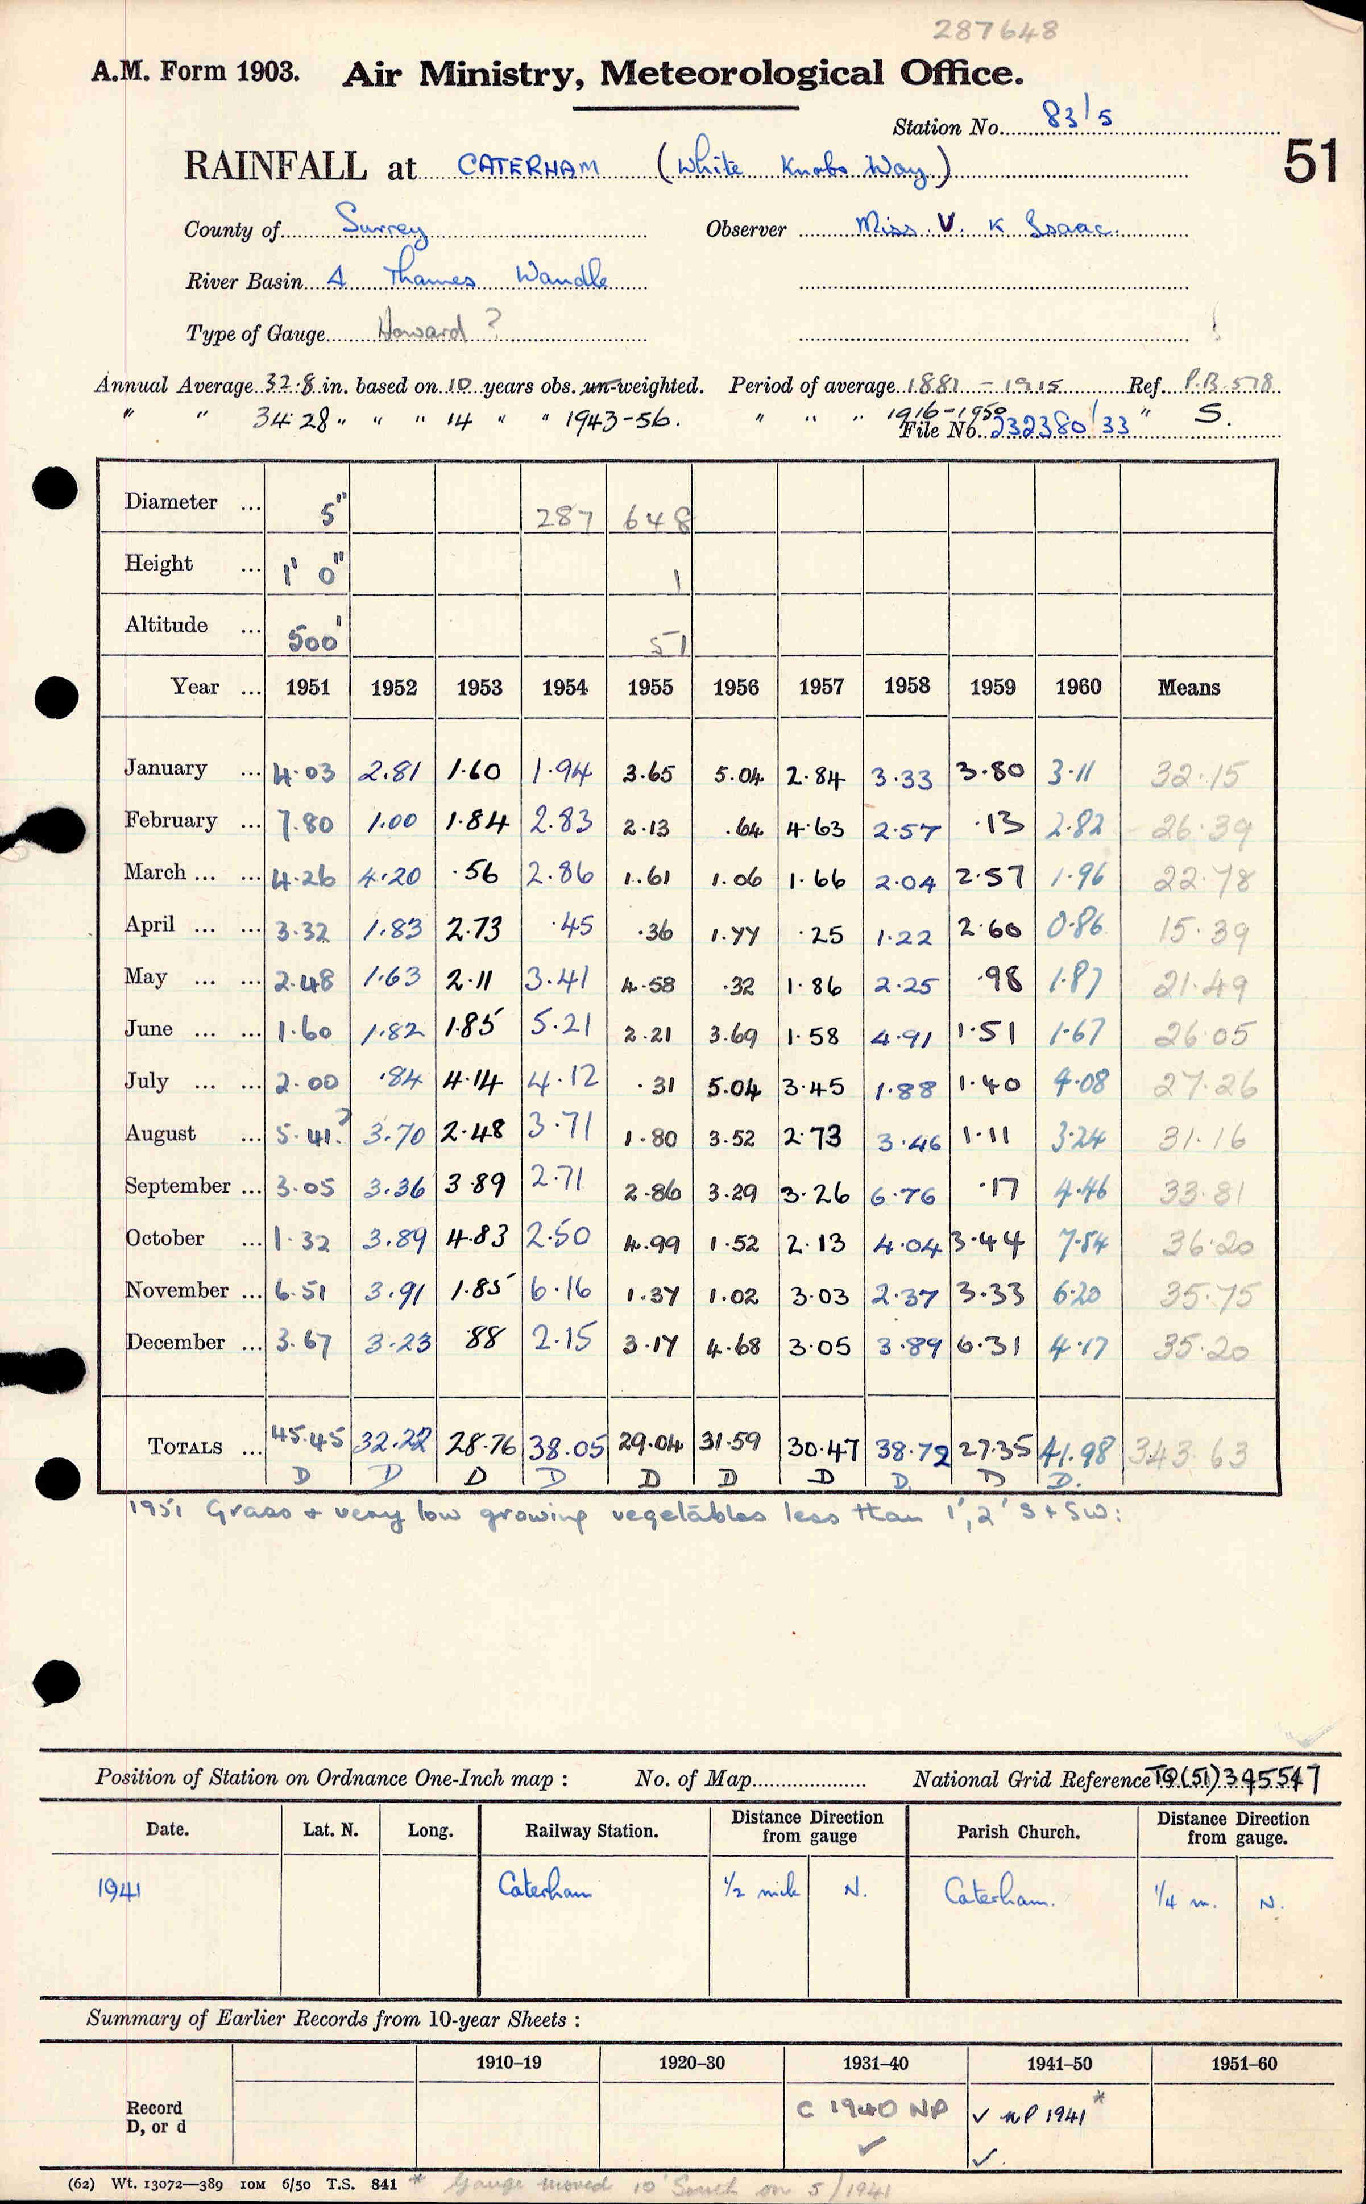 287648
A.M. Form 1903. Air Ministry, Meteorological Office.
Station No. 83/5
51
RAINFALL at CATERHAM (White Knobs Way)
County of Surrey Observer Miss. V. K Isaac.
River Basin A Thames Wandle
Type of Gauge Howard ?
Annual Average 32.8 in. based on 10 years obs. un-weighted. Period of average 1881 - 1915 Ref. P.B. 578
" " 34.28 " " " 14 " " 1943-56. " " " 1916-1950 " S.
File No. 232380/33
Diameter ... 5" 287 648
Height ... 1' 0" 1
Altitude ... 500' 51
Year ... 1951 1952 1953 1954 1955 1956 1957 1958 1959 1960 Means
January ... 4.03 2.81 1.60 1.94 3.65 5.04 2.84 3.33 3.80 3.11 32.15
February ... 7.80 1.00 1.84 2.83 2.13 .64 4.63 2.57 .13 2.82 26.39
March ... ... 4.26 4.20 .56 2.86 1.61 1.06 1.66 2.04 2.57 1.96 22.78
April ... ... 3.32 1.83 2.73 .45 .36 1.77 .25 1.22 2.60 0.86 15.39
May ... ... 2.48 1.63 2.11 3.41 4.58 .32 1.86 2.25 .98 1.87 21.49
June ... ... 1.60 1.82 1.85 5.21 2.21 3.69 1.58 4.91 1.51 1.67 26.05
July ... ... 2.00 .84 4.14 4.12 .31 5.04 3.45 1.88 1.40 4.08 27.26
August ... 5.41? 3.70 2.48 3.71 1.80 3.52 2.73 3.46 1.11 3.24 31.16
September ... 3.05 3.36 3.89 2.71 2.86 3.29 3.26 6.76 .17 4.46 33.81
October ... 1.32 3.89 4.83 2.50 4.99 1.52 2.13 4.04 3.44 7.54 36.20
November ... 6.51 3.91 1.85 6.16 1.37 1.02 3.03 2.37 3.33 6.20 35.75
December ... 3.67 3.23 .88 2.15 3.17 4.68 3.05 3.89 6.31 4.17 35.20
TOTALS ... 45.45 32.22 28.76 38.05 29.04 31.59 30.47 38.72 27.35 41.98 343.63
D D D D D D D D. D D.
1951 Grass & very low growing vegetables less than 1', 2' S & SW:
Position of Station on Ordnance One-Inch map : No. of Map National Grid Reference TQ(51)345547
Date. Lat. N. Long. Railway Station. Distance Direction from gauge Parish Church. Distance Direction from gauge.
1941 Caterham 1/2 mile N. Caterham. 1/4 m. N.
Summary of Earlier Records from 10-year Sheets :
1910–19 1920–30 1931–40 1941–50 1951–60
Record D, or d C 1940 NP ✓ ✓ NP 1941 * ✓.
(62) Wt. 13072—389 10M 6/50 T.S. 841 * Gauge moved 10' South on 5/1941